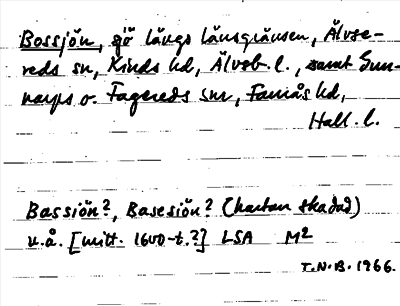 Bossjön, sjö längs länsgränsen, Älvse-
reds sn, Kinds hd, Älvsb. l., samt Gun-
narps o. Fagereds snr, Faurås hd,
Hall. l.
Bassiön?, Basesiön? (kartan skadad)
u.å. [mitt. 1600-t.?] LSA M²
T.N.B. 1966.